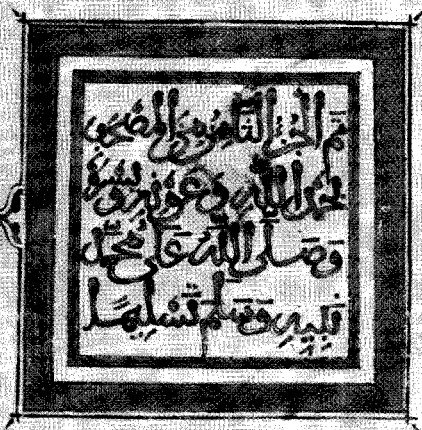 تم الجزء الثامن من المصحف
بحمد الله وعونه ويسره
وصلى الله على محمد
نبيه وسلم تسليما